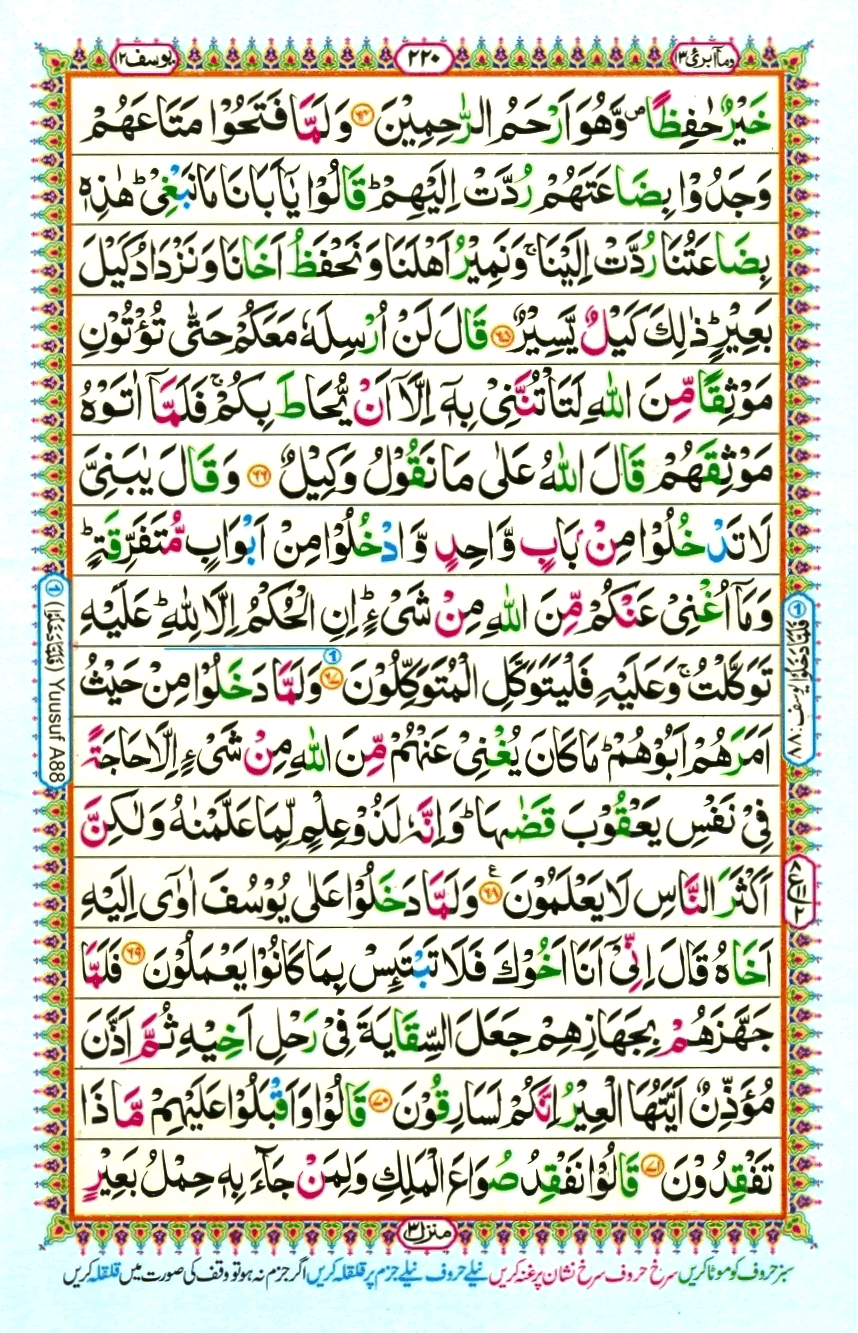 وما أبرئ ١٣
٢٢٠
يوسف ١٢
خَيْرٌ حٰفِظًا ۪ وَّهُوَ اَرْحَمُ الرّٰحِمِيْنَ ﴿۶۴﴾ وَلَمَّا فَتَحُوْا مَتَاعَهُمْ
وَجَدُوْا بِضَاعَتَهُمْ رُدَّتْ اِلَيْهِمْ ؕ قَالُوْا يٰۤاَبَانَا مَا نَبْغِىْ ؕ هٰذِهٖ
بِضَاعَتُنَا رُدَّتْ اِلَيْنَا ۚ وَنَمِيْرُ اَهْلَنَا وَنَحْفَظُ اَخَانَا وَنَزْدَادُ كَيْلَ
بَعِيْرٍ ؕ ذٰلِكَ كَيْلٌ يَّسِيْرٌ ﴿۶۵﴾ قَالَ لَنْ اُرْسِلَهٗ مَعَكُمْ حَتّٰى تُؤْتُوْنِ
مَوْثِقًا مِّنَ اللّٰهِ لَتَاْتُنَّنِىْ بِهٖۤ اِلَّاۤ اَنْ يُّحَاطَ بِكُمْ ۚ فَلَمَّاۤ اٰتَوْهُ
مَوْثِقَهُمْ قَالَ اللّٰهُ عَلٰى مَا نَقُوْلُ وَكِيْلٌ ﴿۶۶﴾ وَقَالَ يٰبَنِىَّ
لَا تَدْخُلُوْا مِنْۢ بَابٍ وَّاحِدٍ وَّادْخُلُوْا مِنْ اَبْوَابٍ مُّتَفَرِّقَةٍ ؕ
وَمَاۤ اُغْنِىْ عَنْكُمْ مِّنَ اللّٰهِ مِنْ شَىْءٍ ؕ اِنِ الْحُكْمُ اِلَّا لِلّٰهِ ؕ عَلَيْهِ
تَوَكَّلْتُ ۚ وَعَلَيْهِ فَلْيَتَوَكَّلِ الْمُتَوَكِّلُوْنَ ﴿۶۷﴾ وَلَمَّا دَخَلُوْا مِنْ حَيْثُ
اَمَرَهُمْ اَبُوْهُمْ ؕ مَا كَانَ يُغْنِىْ عَنْهُمْ مِّنَ اللّٰهِ مِنْ شَىْءٍ اِلَّا حَاجَةً
فِىْ نَفْسِ يَعْقُوْبَ قَضٰىهَا ؕ وَاِنَّهٗ لَذُوْ عِلْمٍ لِّمَا عَلَّمْنٰهُ وَلٰكِنَّ
اَكْثَرَ النَّاسِ لَا يَعْلَمُوْنَ ﴿۶۸﴾ وَلَمَّا دَخَلُوْا عَلٰى يُوْسُفَ اٰوٰٓى اِلَيْهِ
اَخَاهُ قَالَ اِنِّىْۤ اَنَا اَخُوْكَ فَلَا تَبْتَئِسْ بِمَا كَانُوْا يَعْمَلُوْنَ ﴿۶۹﴾ فَلَمَّا
جَهَّزَهُمْ بِجَهَازِهِمْ جَعَلَ السِّقَايَةَ فِىْ رَحْلِ اَخِيْهِ ثُمَّ اَذَّنَ
مُؤَذِّنٌ اَيَّتُهَا الْعِيْرُ اِنَّكُمْ لَسَارِقُوْنَ ﴿۷۰﴾ قَالُوْا وَاَقْبَلُوْا عَلَيْهِمْ مَّاذَا
تَفْقِدُوْنَ ﴿۷۱﴾ قَالُوْا نَفْقِدُ صُوَاعَ الْمَلِكِ وَلِمَنْ جَآءَ بِهٖ حِمْلُ بَعِيْرٍ
(فَلَمَّا دَخَلُوْا) Yuusuf A88
فَلَمَّا دَخَلُوْا یوسف: ٨٨
منزل ٣
سبز حروف کو موٹا کریں سرخ حروف سرخ نشان پر غنہ کریں نیلے حروف نیلے جزم پر قلقلہ کریں اگر جزم نہ ہو تو وقف کی صورت میں قلقلہ کریں